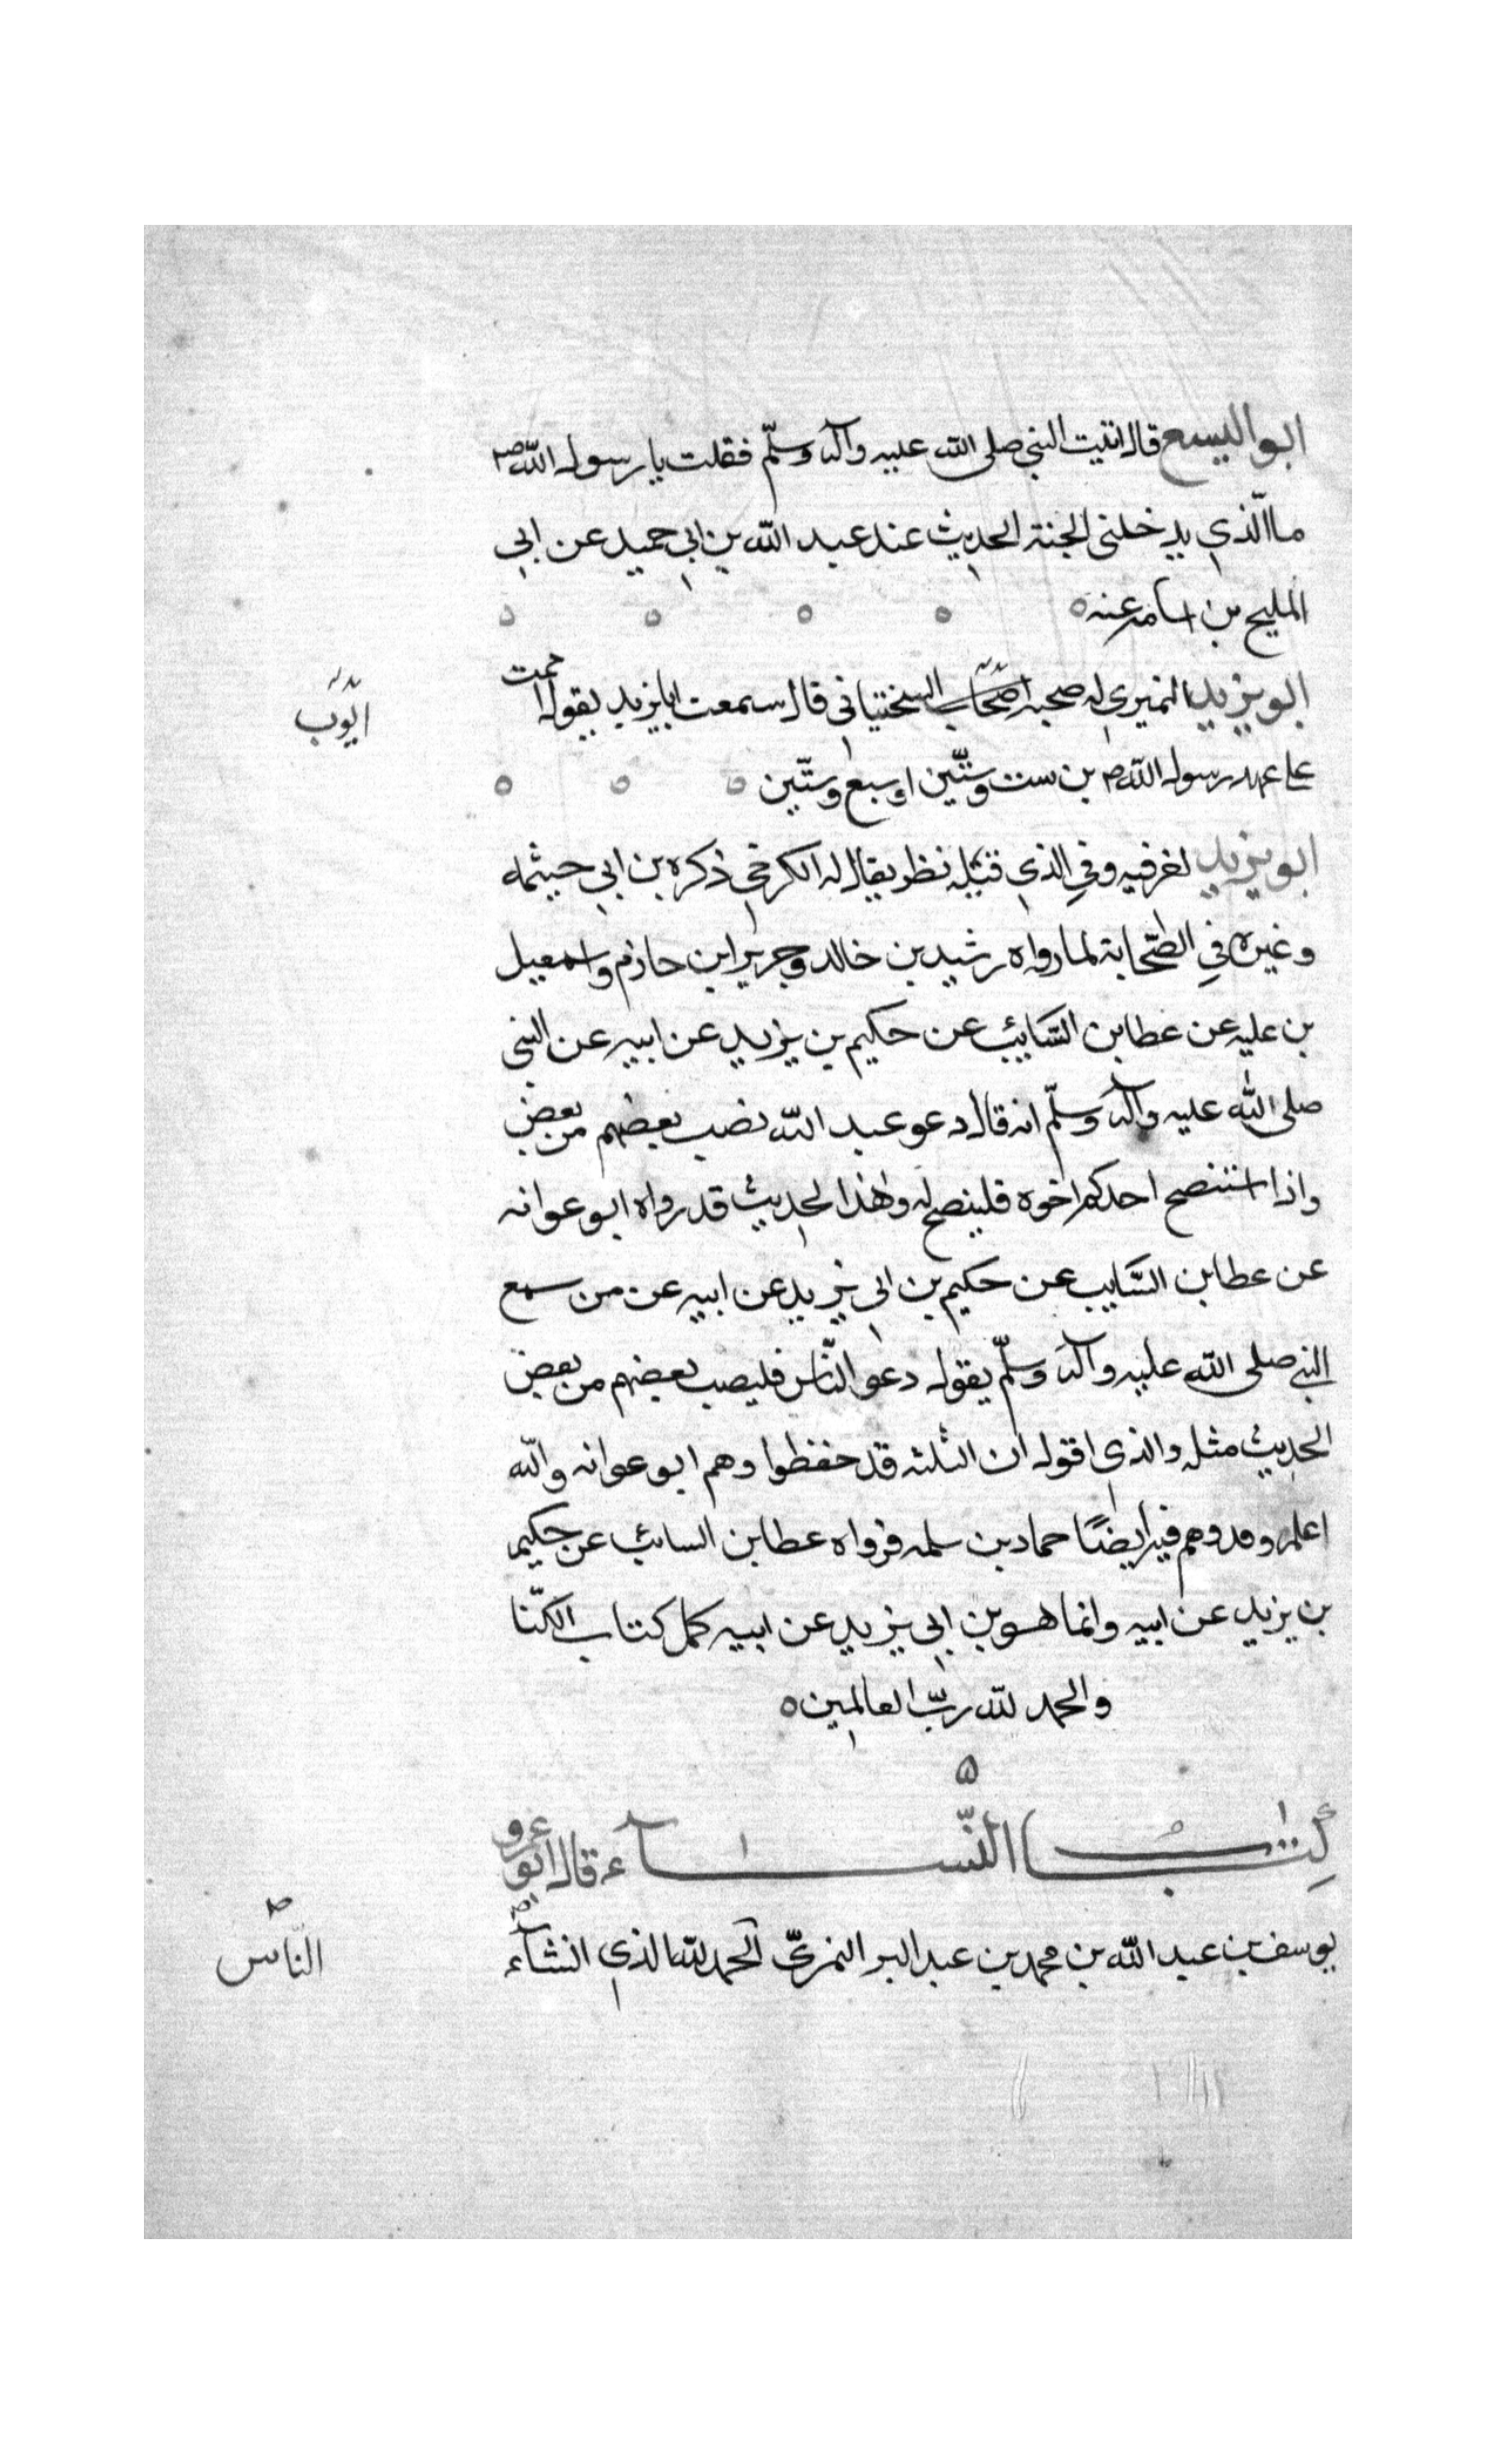 ابو اليسع قال اتيت النبي صلى الله عليه وآله وسلّم فقلت يا رسول الله ص
ما الّذي يدخلنى الجنة الحديث عند عبد الله بن ابي حميد عن ابي
المليح بن اسامه عنه
ابو يزيد النميري له صحبه اصحاب السختياني قال سمعت ابا يزيد يقول اممت
ايّوب
على عهد رسول الله ص بن ست وستّين او سبع وستّين
ابو يزيد اخر فيه وفي الذي قبله نظر يقال له الكرخي ذكره بن ابي خيثمه
وغيره في الصّحابة لما رواه رشيد بن خالد وجرير ابن حازم واسمعيل
بن عليه عن عطا بن السّايب عن حكيم بن يزيد عن ابيه عن النبي
صلى الله عليه وآله وسلّم انه قال دعو عبد الله نصب بعضهم من بعض
واذا استنصح احدكم اخوه فلينصح له وهذا الحديث قد رواه ابو عوانه
عن عطا بن السّايب عن حكيم بن ابى يزيد عن ابيه عن من سمع
النبي صلى الله عليه وآله وسلّم يقول دعو النّاس فليصب بعضهم من بعض
الحديث مثله والذي اقول ان الثلثه قد حفظوا وهم ابو عوانه والله
اعلم وقد وهم فيه ايضًا حماد بن سلمه فرواه عطا بن السائب عن حكيم
بن يزيد عن ابيه وانما هو بن ابي يزيد عن ابيه كمل كتاب الكنا
والحمد لله ربّ العالمين
كتاب النّساء قال ابو عمرو
يوسف بن عبد الله بن محمد بن عبد البر النمريّ الحمد لله الذي انشاء
النّاس